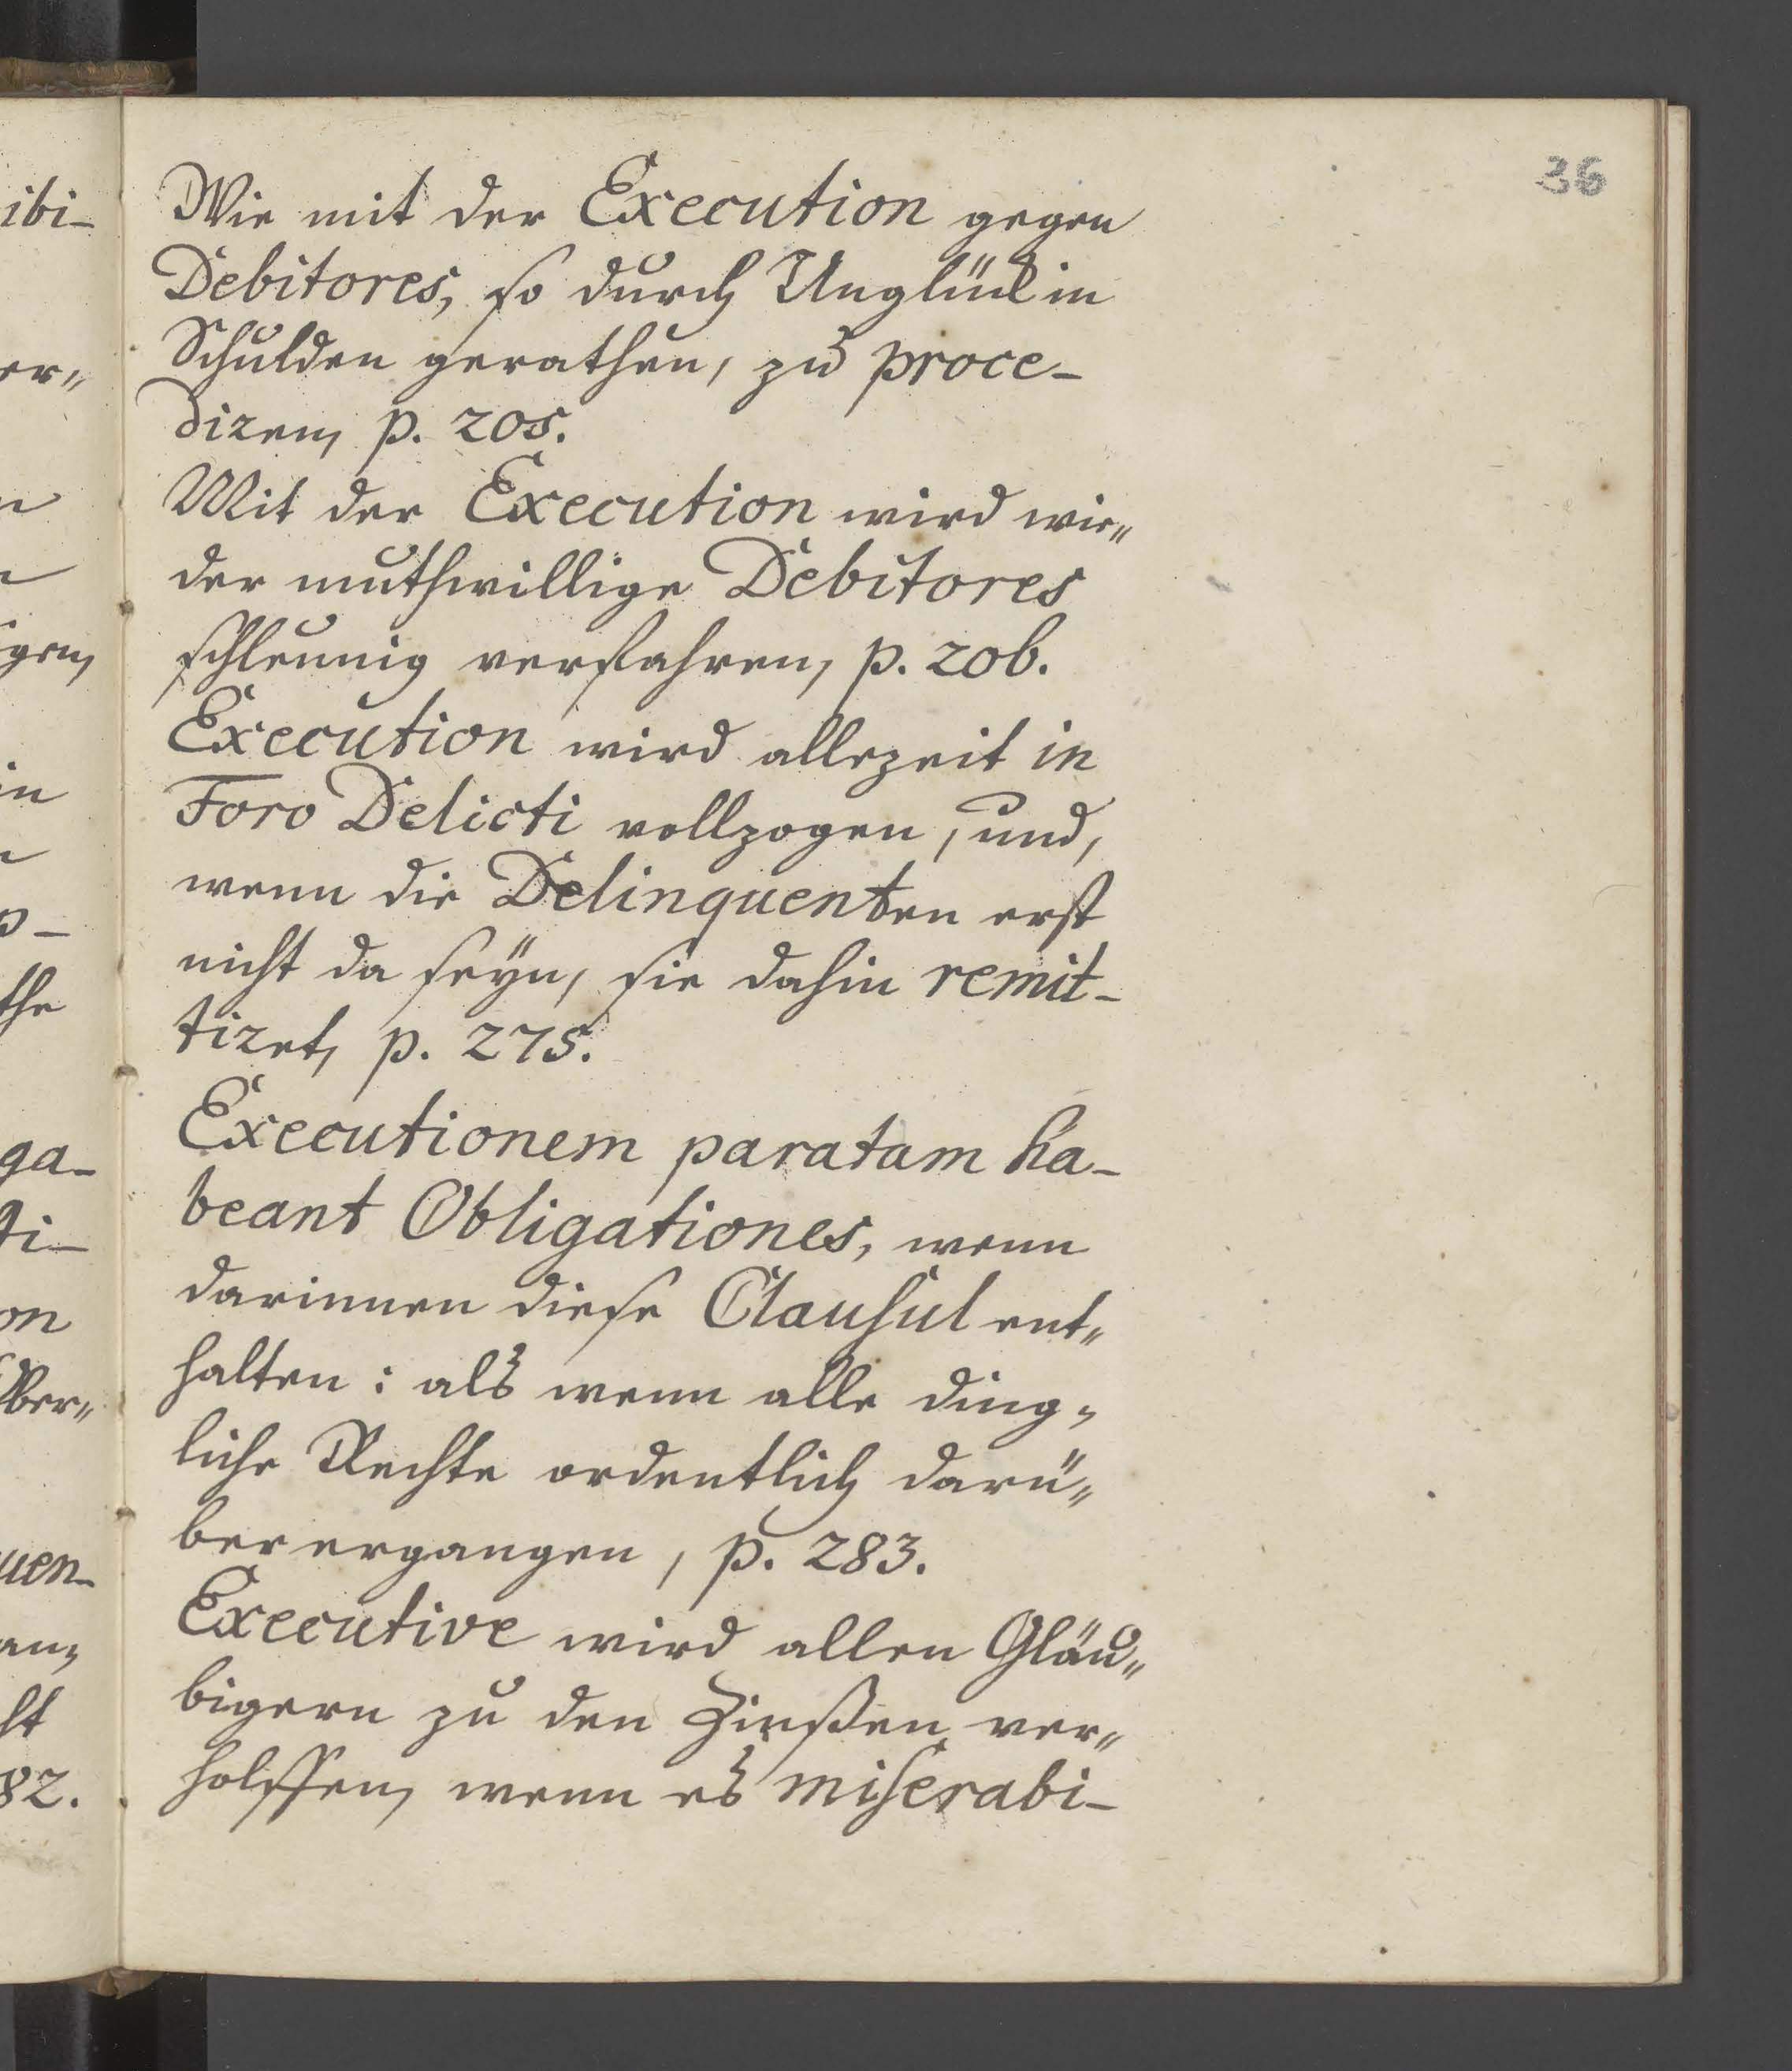 36
Wie mit der Execution gegen
Debitores, so durch Unglück in
Schulden gerathen, zu proce-
diren, p. 205.
Mit der Execution wird wie„
der muthwillige Debitores
schleunig verfahren, p. 206.
Execution wird allezeit in
Foro Delicti vollzogen, und,
wenn die Delinquenten erst
nicht da seÿn, sie dahin remit-
tiret, p. 275.
Executionem paratam ha-
beant Obligationes, wenn
darinnen diese Clausul ent„
halten: als wenn alle ding„
liche Rechte ordentlich darü„
ber ergangen, p. 283.
Executive wird allen Gläu„
bigern zu den Zinßen ver„
holffen, wenn es miserabi-